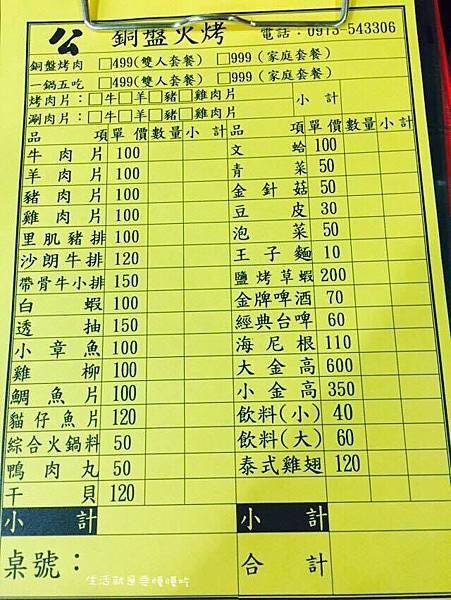 公 銅盤火烤 電話：0973-543306
銅盤烤肉 □499(雙人套餐) □999(家庭套餐)
一鍋五吃 □499(雙人套餐) □999(家庭套餐)
烤肉片：□牛□羊□豬□雞肉片 小計
涮肉片：□牛□羊□豬□雞肉片
品項 單價 數量 小計 品項 單價 數量 小計
牛肉片 100 文蛤 100
羊肉片 100 青菜 50
豬肉片 100 金針菇 50
雞肉片 100 豆皮 30
里肌豬排 100 泡菜 50
沙朗牛排 120 王子麵 10
帶骨牛小排 150 鹽烤草蝦 200
白蝦 100 金牌啤酒 70
透抽 150 經典台啤 60
小章魚 100 海尼根 110
雞柳 100 大金高 600
鯛魚片 100 小金高 350
貓仔魚片 120 飲料(小) 40
綜合火鍋料 50 飲料(大) 60
鴨肉丸 50 泰式雞翅 120
干貝 120
小計 小計
桌號： 合計
生活就是要慢慢吃